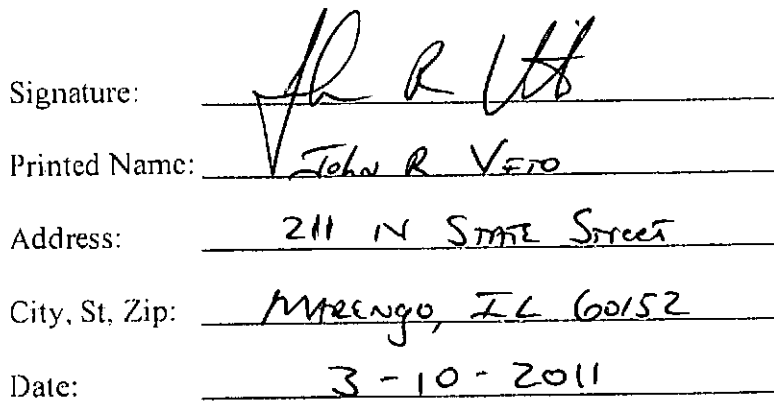 Signature: John R Veto
Printed Name: John R Veto
Address: 211 N State Street
City, St, Zip: Marengo, IL 60152
Date: 3-10-2011